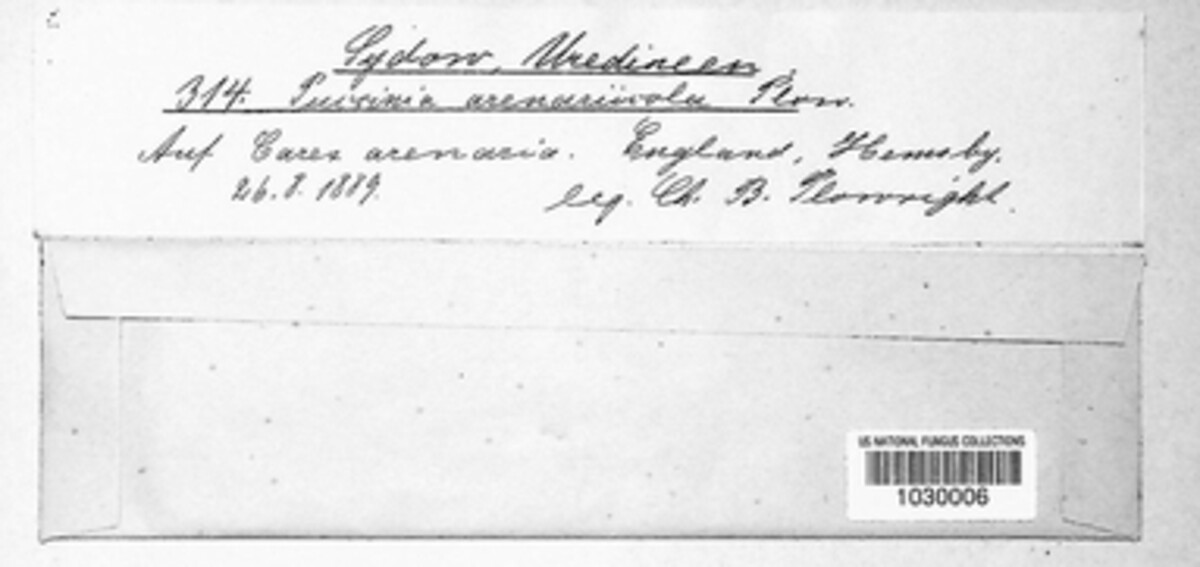 Sydow, Uredineen
314. Puccinia arenariicola Plow.
Auf Carex arenaria. England, Hemsby.
26.8.1889. leg. Ch. B. Plowright.
US NATIONAL FUNGUS COLLECTIONS
1030006